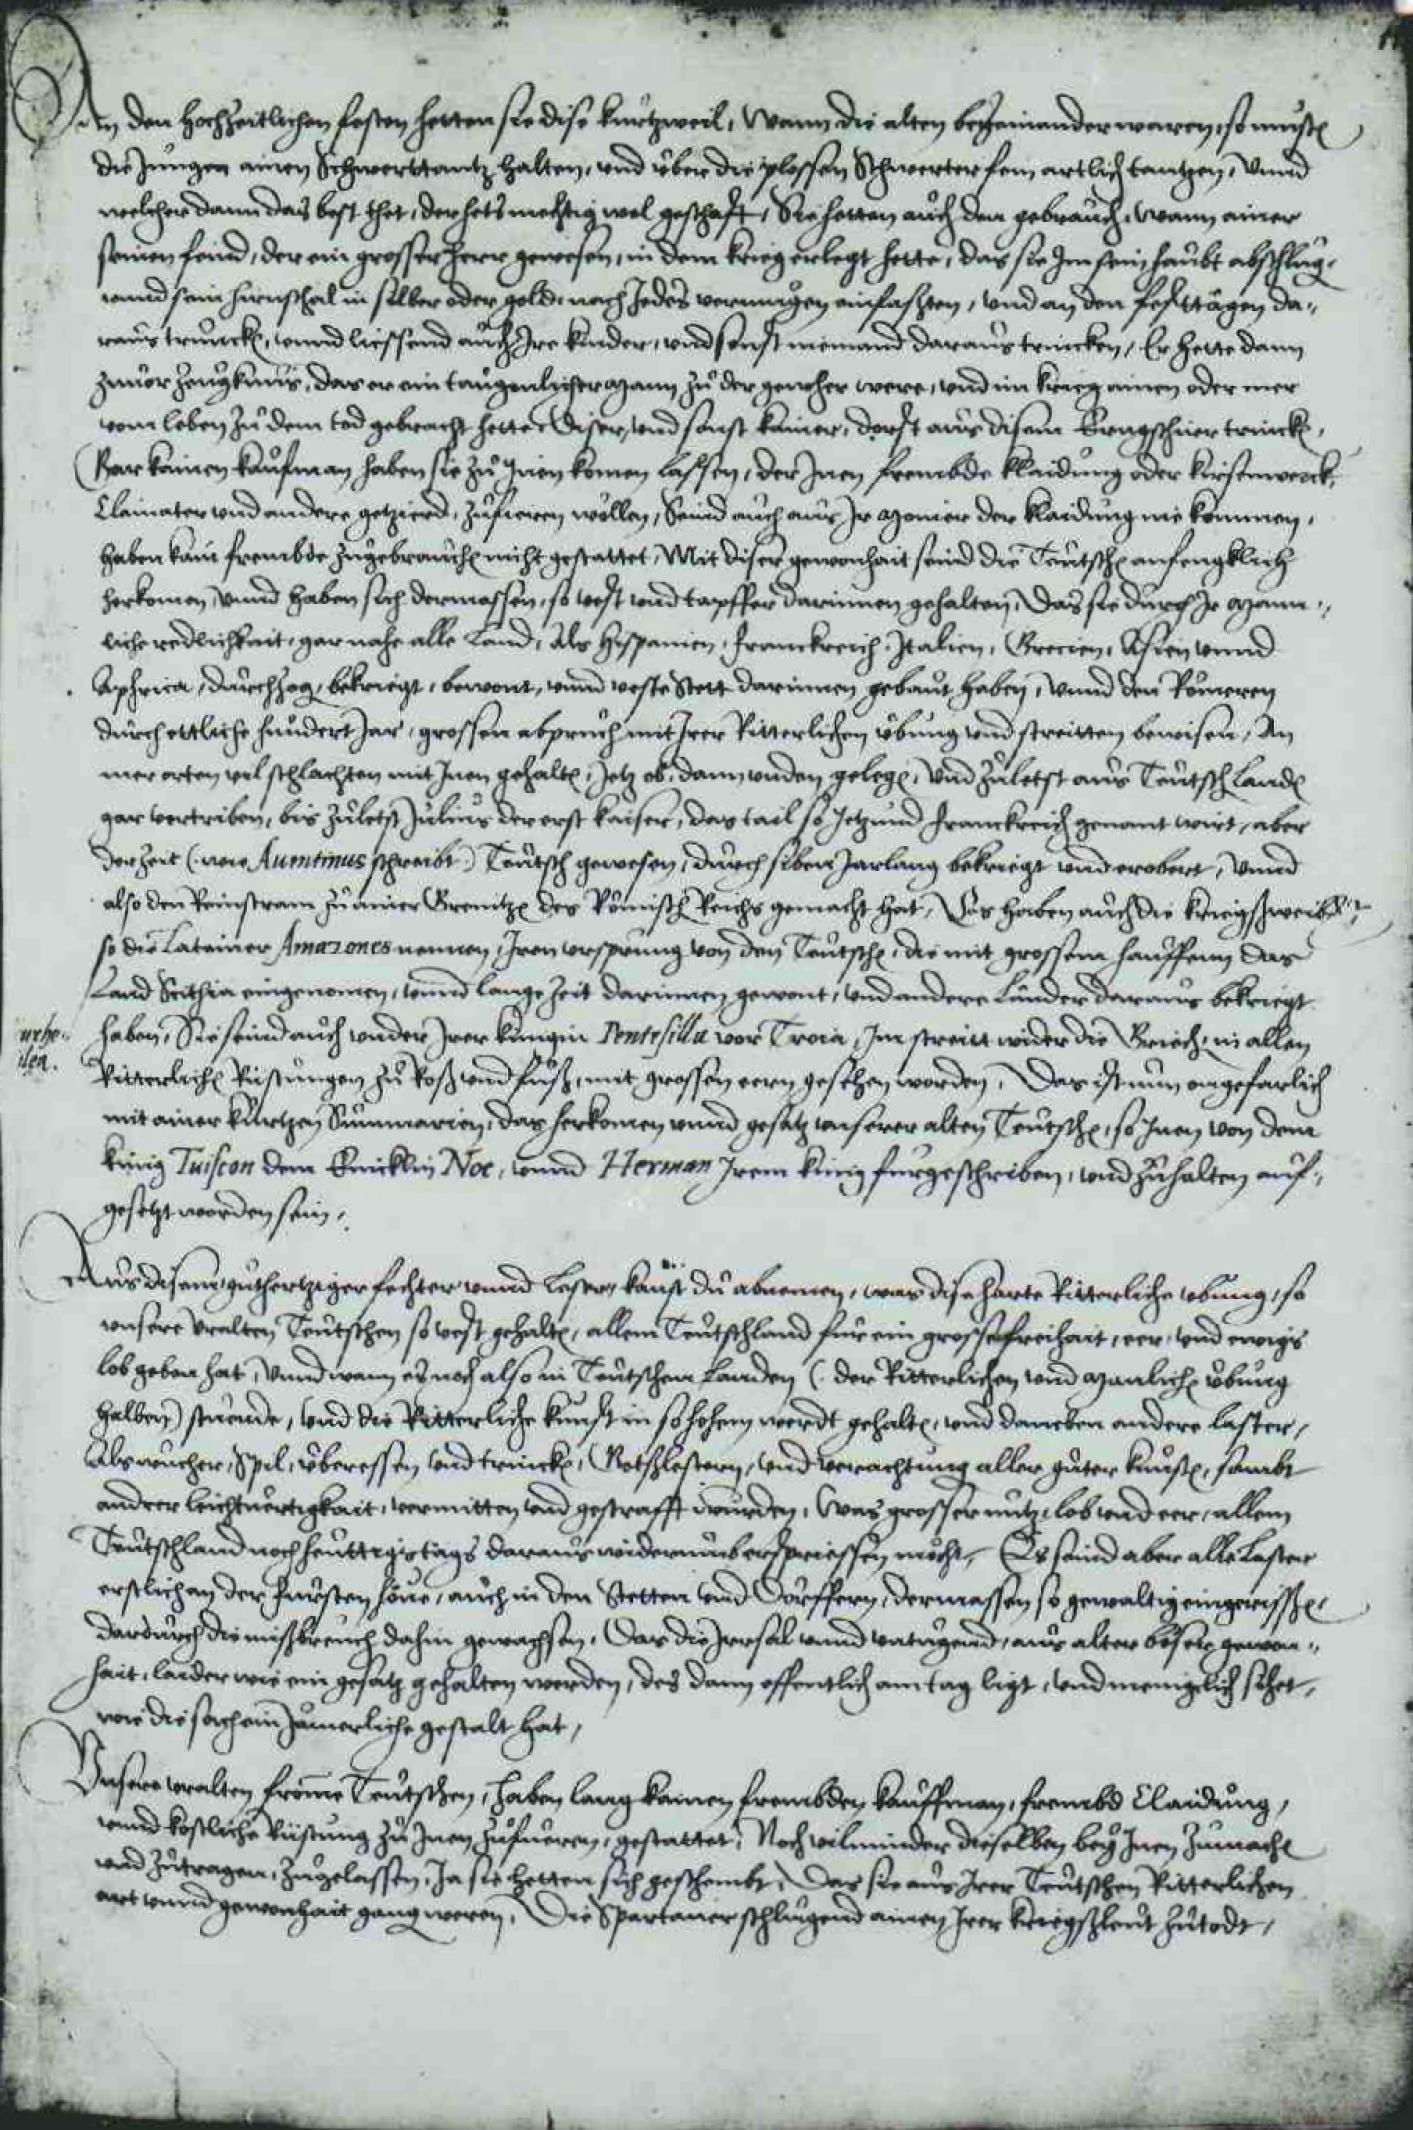 An den hochzeitlichen festen hetten sie dise kurtzweil, Wann die alten beyeinander waren, so muesten
die Jungen ainen Schwerttantz halten, und über die plossen Schwerter fein artlich tantzen, Unnd
welcher dann das best thet, der hets mechtig wol geschafft, Sie hetten auch den gebrauch, wann ainer
seinen feind, der ein grosser herr gewesen, in dem krieg erlegt hette, das sie Im sein haubt abschlůg,
unnd sein hirnschal in silber oder gold, nach Jedes vermugen einfasten, und an den festtägen da„
raus trunck, unnd liessend auch Ire kinder, und sonst niemand daraus trincken, Er hette dann
zuvor zeugknus, das er ein taugenlicher Mann zu der gwher were, und im krieg ainen oder mer
vom leben zu dem tod gebracht hette, Diser, und sonst kainer, dorfft aus disem trincken,
Gar kainen kaufman haben sie zu Inen komen lassen, der Inen frembde klaidung oder kirsenwerck,
Clainater und andere getzierd, zufieren wöllen, Seind auch aus Ir Monier der klaidung nie kommen,
haben kain frembde zugebrauchen nicht gestattet, Mit diser gewonhait seind die Teutschen anfengklich
herkomen, unnd haben sich dermassen, so vest und tapffer darinnen gehalten, Das sie durch Ir Mann„
liche redlichkait, gar nahe alle Land, Als Hispanien, Franckreich, Italien, Grecien, Asien unnd
Aphrica, durchzog, bekriegt, bewont, unnd veste Stett darinnen gebaut haben, Unnd den Römeren
durch ettliche hundert Jar, grossen abpruch mit Irer Ritterlichen übung und streitten bewisen, An
mer orten vil schlachten mit Inen gehalten, Jetz ob, dann unden gelegen, Und zuletst aus Teutschlanden
gar vertriben, bis zuletst Julius der erst kaiser, das tail so Jetzund Franckreich genant wirt, aber
der zeit (: wie Auentinus schreibt :) Teutsch gewesen, durch siben Jar lang bekriegt und erobert, Unnd
also den Reinstram zu ainer Grenitz des Römisch Reichs gemacht hat, Es haben auch die kriegsweiber
so die Lateiner Amazones nennen, Iren ursprung von den Teutschen, die mit grossem hauffen das
Land Scithia eingenomen, unnd lange zeit darinnen gewont, und andere Länder daraus bekriegt
haben, Sie seind auch under Irer kunigin Pentesilla vor Troia, Im streitt wider die Griechen, in allen
Ritterlichen Rüstungen zu Roß und fuß, mit grossen eern gesehen worden, Das ist nun ongefarlich
mit ainer kurtzen Summarien, das herkomen unnd gesatz unserer alten Teutschen, so Inen von dem
künig Tuiscon dem Enicklin Noe, unnd Herman Irem künig furgeschriben, und zuhalten auf„
gesetzt worden sein,
Aus disem, guthertziger fechter unnd Leser, kanst du abnemen, was dise harte Ritterliche ubung, so
unsere uralten Teutschen so vest gehalten, allem Teutschland für ein grosse freihait, eer, und ewigs
lob geben hat, Unnd wann es noch also in Teutschen Landen (: der Ritterlichen und Manlichen übung
halben) stuende, und die Ritterliche kunst in so hohem werdt gehalten, und daneben andere laster,
Als wucher, spil, überessen und trincken, Gotslestern, und verachtung aller guter kunsten, sambt
andrer leichtuertigkait, vermitten und gestrafft wurden, Was grosser nutz, lob und eer, allem
Teutschland noch heuttigistags daraus widerumb erspriessen möcht, Es seind aber alle Laster
erstlich an der Fursten höue, auch in den Stetten und Dörffern, dermassen so gewaltig eingerissen,
dardurch die mißbreuch dahin gewachsen, Das die Irrsal unnd untugend, aus alter böser gewon„
hait, laider wie ein gesatz gehalten werden, des dann offentlich am tag ligt, und menigclich sihet,
wie die sach ein Jämerliche gestalt hat,
Unsere uralten fromme Teutschen, haben lang kainen frembden kauffman, frembd Claidung,
unnd köstliche Rüstung zu Inen zufueren, gestattet, Noch vil minder dieselben bey Inen zumachen
und zutragen, zugelassen, Ja sie hetten sich geschembt, Das sie aus Irer Teutschen Ritterlichen
art unnd gewonhait gang weren, Die Spartaner schlugend ainen Irer kriegsleut zutodt,